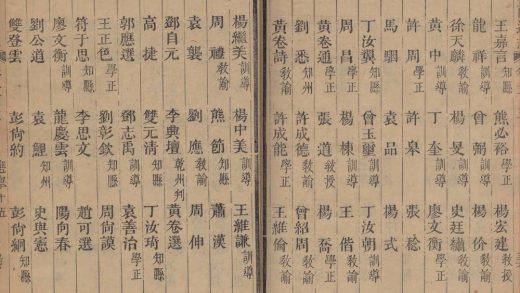 王嘉言訓導 熊必裕學正 楊宏建敎諭
龍祥訓導 楊份敎諭
徐天麟敎諭 曾弼訓導 史廷繡敎諭
黃中訓導 丁奎訓導 廖文衡學正
許周學正 許臯 張稔
馬 袁品 楊式
丁汝翼 曾玉璽訓導 丁汝朝訓導
周昌學正 楊棟訓導 王偕敎諭
黃卷通敎諭 張道敎授 楊喬學正
劉悉知州 許成德敎諭 曾紹周敎諭
黃卷詩敎諭 許成能學正 王維倫敎諭
楊繼美訓導 楊中美訓導 王維謙訓導
周禮敎諭 熊節訓導 蕭漢
袁襲 劉應敎諭 周伸
鄧自元 李興壇乾州判 黃卷選
高捷 雙元清 丁汝琦知縣
郭應選 鄧志禹訓導 袁善治學正
王正色學正 劉彰欽知縣 周尚謨
符于思知縣 李思文 趙可選
廖文衡訓導 龍慶雲訓導 陽向春
劉公道 袁鯉知州 史與憲
雙登雲 彭尚約 彭尚絅知縣